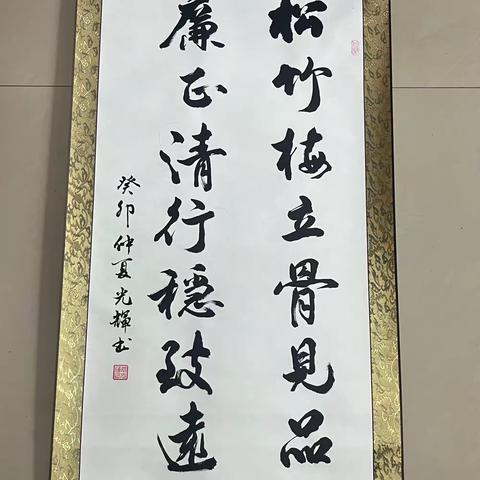 松竹梅立骨見品
廉正清行穩致遠
癸卯仲夏光輝书